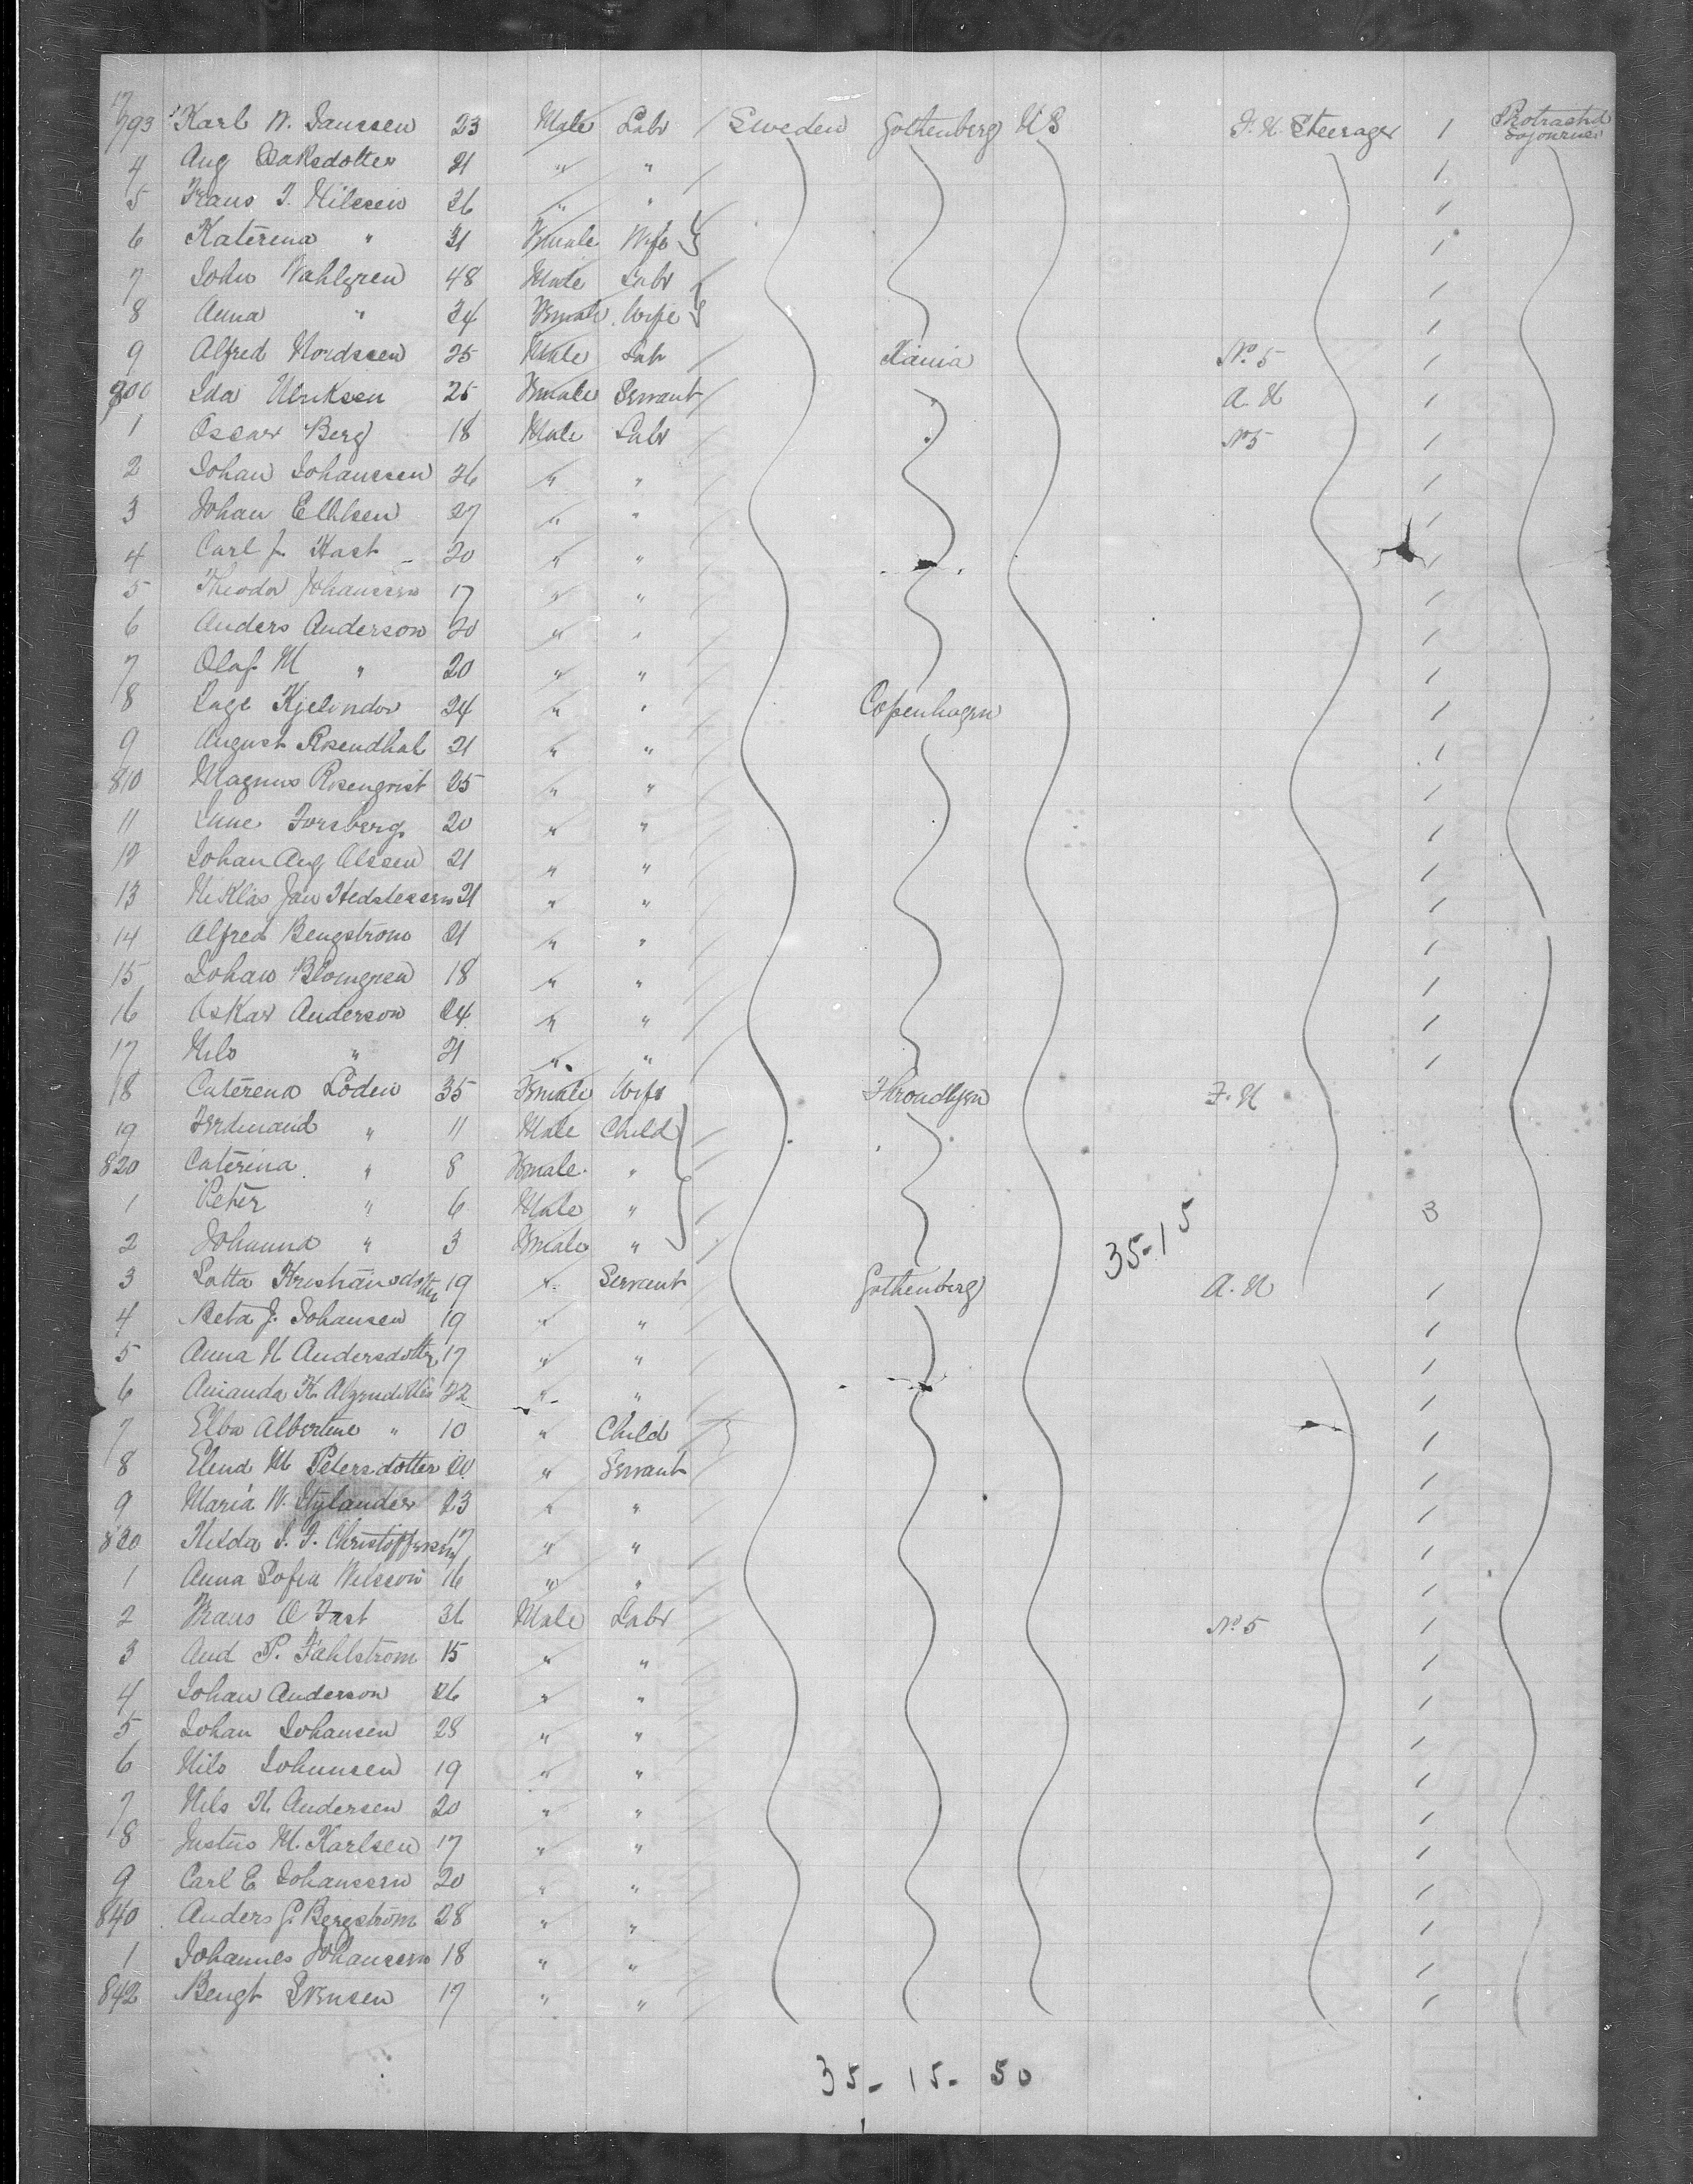 793 Karl W. Janssen 23 Male Labr / Sweden Gothenberg US F. U. Steerage 1 Protracted Sojourner
4 Aug Isaksdotter 21 " " / /
5 Frans J. Nilssen 26 " " / /
6 Katerina " 31 Female Wife /
7 John Wahlgren 48 Male Labr /
8 Anna " 34 Female Wife /
9 Alfred Nordssen 25 Male Labr / Xiania No. 5 /
800 Ida Ulriksen 25 Female Servant / A. U /
1 Oscar Berg 18 Male Labr No 5 /
2 Johan Johanssen 26 " " / /
3 Johan 27 " " / /
4 Carl J. Hast 20 " " / /
5 Theodor Johanssen 17 " " / /
6 Anders Anderson 20 " " / /
7 Olaf M " 20 " " / /
8 Lage 24 " " / Copenhagen /
9 August Rosendhal 21 " " / /
810 Magnus Rosenqvist 25 " " / /
11 Forsberg 20 " " / /
12 Johan Aug Olssen 21 " " / /
13 Niklas Jan 21 " " / /
14 Alfred Bengstrom 21 " " / /
15 Johan Blomgren 18 " " / /
16 Oskar Anderson 24 " " / /
17 Nils " 21 " " / /
18 Caterena Loden 35 Female Wife Throndhjem F. U
19 Ferdinand " 11 Male Child /
820 Caterina " 8 Female " /
1 Peter " 6 Male " / 3
2 Johanna " 3 Female " / 35-15
3 Lotta Kristiansdotter 19 " Servant Gothenberg A. U /
4 Beta J. Johansen 19 " " / /
5 Anna N Andersdotter 17 " " / /
6 Amanda K. 22 " " / /
7 Elba Albertine " 10 " Child /
8 Elena M Petersdotter 20 " Servant /
9 Maria W. 23 " " / /
830 Hilda J. F. Christoffersen 17 " " / /
1 Anna Sofia Nilsson 16 " " / /
2 Frans O Fast 36 Male Labr No. 5 /
3 And P. Fahlstrom 15 " " / /
4 Johan Anderson 26 " " / /
5 Johan Johansen 28 " " / /
6 Nils Johansen 19 " " / /
7 Nils H. Andersen 20 " " / /
8 Justus M. Karlsen 17 " " / /
9 Carl E Johanssen 20 " " / /
840 Anders G. Bergstrom 28 " " / /
1 Johannes Johanssen 18 " " / /
842 Bengt Svensen 17 " " / /
35- 15- 50